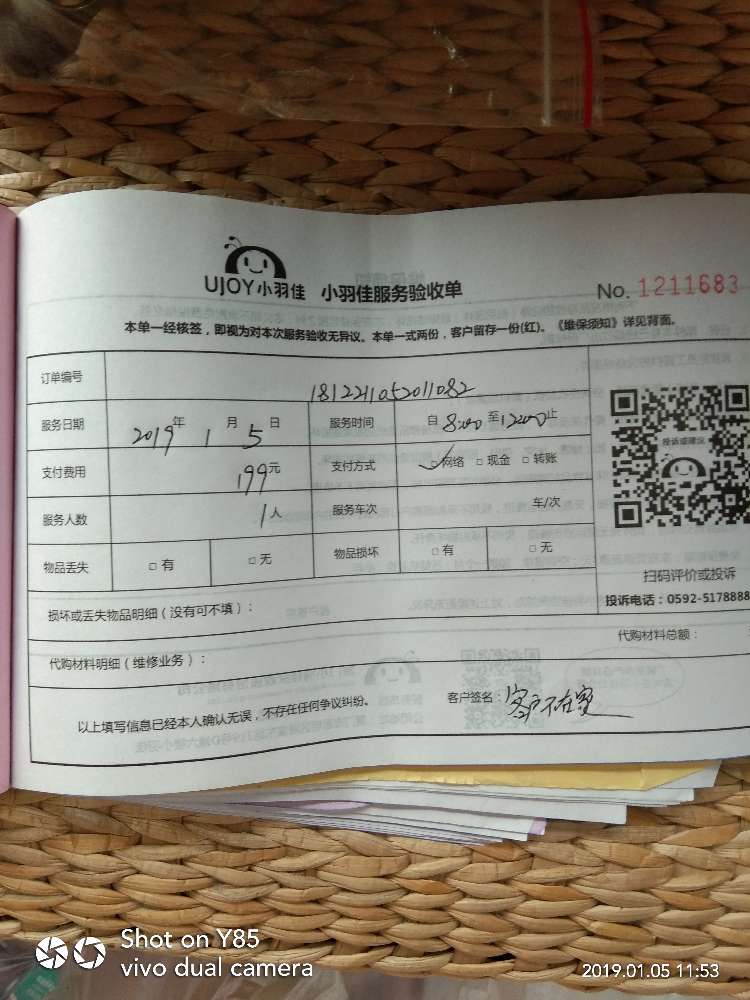 UJOY小羽佳 小羽佳服务验收单 No. 1211683
本单一经核签，即视为对本次服务验收无异议。本单一式两份，客户留存一份(红)。《维保须知》详见背面。
订单编号 1812211052011082
服务日期 2019年1月5日 服务时间 自8:00至12:00止
支付费用 199元 支付方式 □网络 □现金 □转账
投诉或建议
服务人数 1人 服务车次 车/次
物品丢失 □有 □无 物品损坏 □有 □无
扫码评价或投诉
投诉电话：0592-5178888
损坏或丢失物品明细（没有可不填）：
代购材料总额：
代购材料明细（维修业务）：
以上填写信息已经本人确认无误，不存在任何争议纠纷。 客户签名：客户不在家
Shot on Y85
vivo dual camera
2019.01.05 11:53